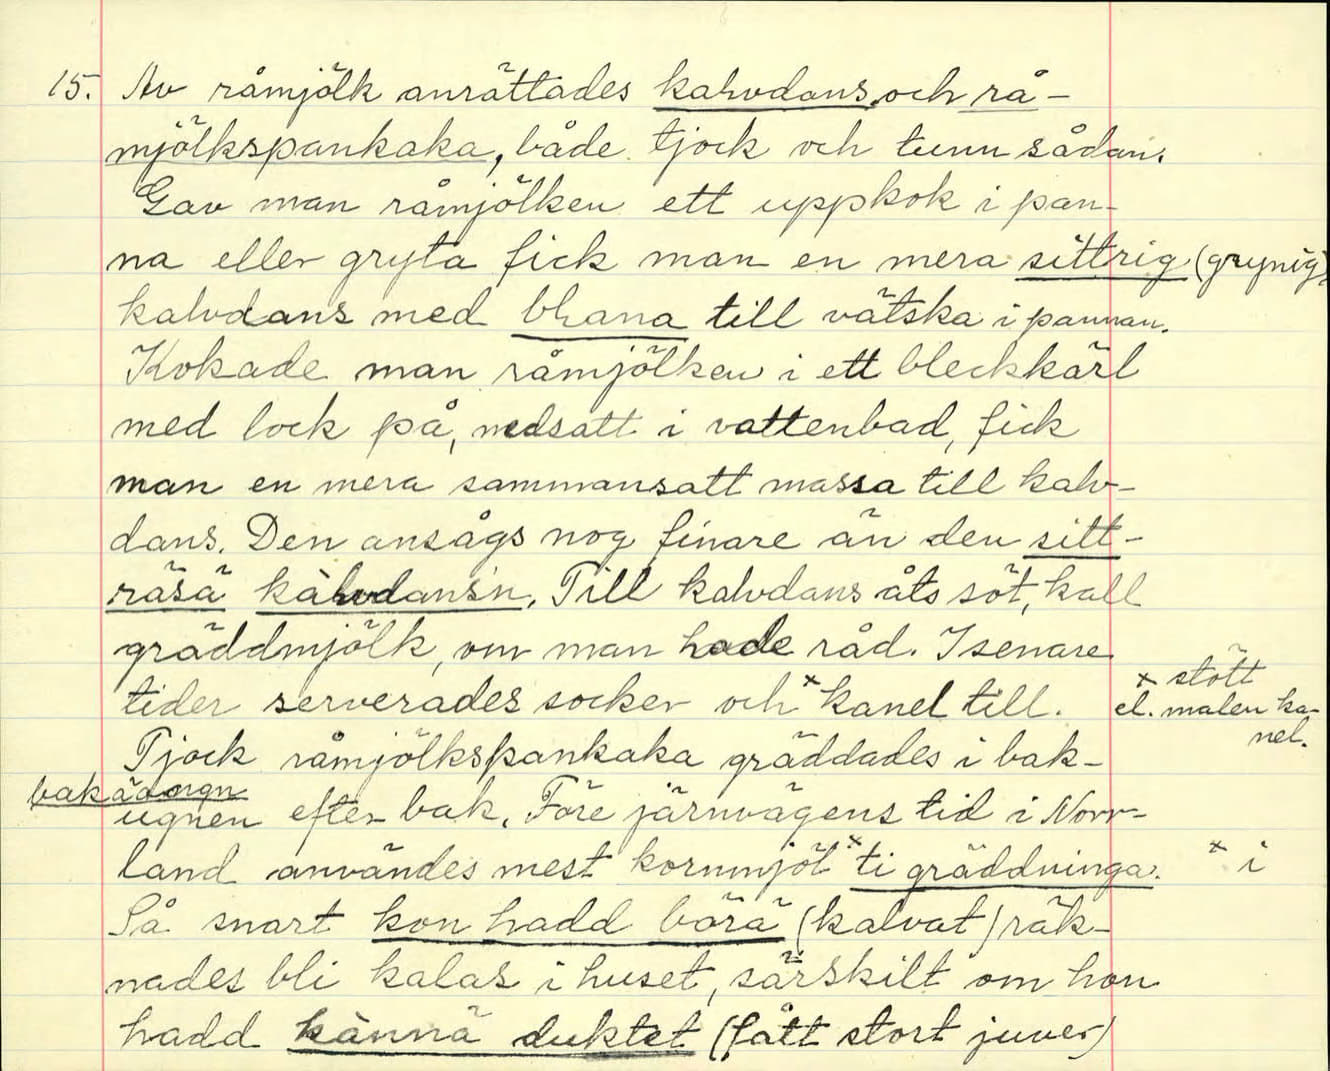 15. Av råmjölk anrättades kalvdans och rå-
mjölkspankaka, både tjock och tunn sådan.
Gav man råmjölken ett uppkok i pan-
na eller gryta fick man en mera sittrig (grynig)
kalvdans med till vätska i pannan.
Kokade man råmjölken i ett bleckkärl
med lock på, nedsatt i vattenbad, fick
man en mera sammansatt massa till kalv-
dans. Den ansågs nog finare än den sitt-
räsä kàlvdans'n. Till kalvdans åts söt, kall
gräddmjölk, om man hade råd. I senare
tider serverades socker och x kanel till.
x stött
el. malen ka-
nel.
Tjock råmjölkspankaka gräddades i bak-
ugnen efter bak. Före järnvägens tid i Norr-
land användes mest kornmjöl x ti gräddninga. x i
Så snart kon hadd börä (kalvat) räk-
nades bli kalas i huset, särskilt om hon
hadd kännä duktet (fått stort juver)